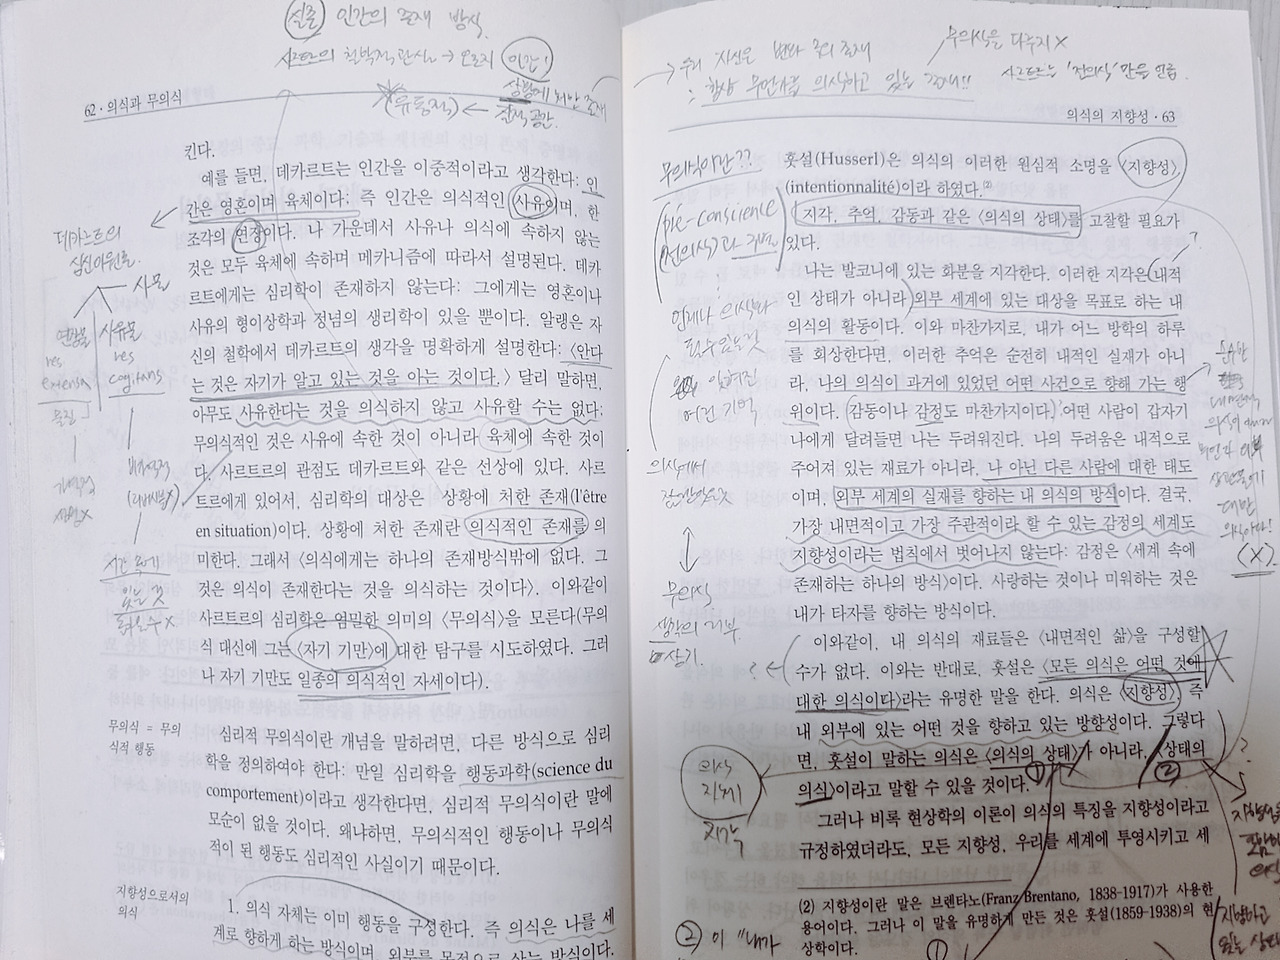 실존 인간의 존재 방식.
사르트르의 철학적 관심 → 오로지 인간!
상황에 처한 존재
(유동적) ← 공간.
62 · 의식과 무의식
킨다.
예를 들면, 데카르트는 인간을 이중적이라고 생각한다: 인
간은 영혼이며 육체이다; 즉 인간은 의식적인 〈사유〉이며, 한
조각의 연장이다. 나 가운데서 사유나 의식에 속하지 않는
것은 모두 육체에 속하며 메카니즘에 따라서 설명된다. 데카
르트에게는 심리학이 존재하지 않는다: 그에게는 영혼이나
사유의 형이상학과 정념의 생리학이 있을 뿐이다. 알랭은 자
신의 철학에서 데카르트의 생각을 명확하게 설명한다: 〈안다
는 것은 자기가 알고 있는 것을 아는 것이다.〉 달리 말하면,
아무도 사유한다는 것을 의식하지 않고 사유할 수는 없다;
무의식적인 것은 사유에 속한 것이 아니라 육체에 속한 것이
다. 사르트르의 관점도 데카르트와 같은 선상에 있다. 사르
트르에게 있어서, 심리학의 대상은 상황에 처한 존재(l'être
en situation)이다. 상황에 처한 존재란 의식적인 존재를 의
미한다. 그래서 〈의식에게는 하나의 존재방식밖에 없다. 그
것은 의식이 존재한다는 것을 의식하는 것이다〉. 이와같이
사르트르의 심리학은 엄밀한 의미의 〈무의식〉을 모른다(무의
식 대신에 그는 〈자기 기만〉에 대한 탐구를 시도하였다. 그러
나 자기 기만도 일종의 의식적인 자세이다).
무의식 = 무의
식적 행동
심리적 무의식이란 개념을 말하려면, 다른 방식으로 심리
학을 정의하여야 한다: 만일 심리학을 행동과학(science du
comportement)이라고 생각한다면, 심리적 무의식이란 말에
모순이 없을 것이다. 왜냐하면, 무의식적인 행동이나 무의식
적이 된 행동도 심리적인 사실이기 때문이다.
지향성으로서의
의식
1. 의식 자체는 이미 행동을 구성한다. 즉 의식은 나를 세
계로 향하게 하는 방식이며, 외부를 목적으로 사는 방식이다.
데카르트의
심신이원론.
사물
연장물 사유물
res res
extensa cogitans
물질
시간
있는 것
→ 우리 자신은
: 항상 무언가를 의식하고 있는 존재!!
무의식을 다루지 X
사르트르는 '전의식'만을 언급.
의식의 지향성 · 63
훗설(Husserl)은 의식의 이러한 원심적 소명을 〈지향성〉,
(intentionnalité)이라 하였다.⁽²⁾
지각, 추억, 감동과 같은 〈의식의 상태〉를 고찰할 필요가
있다.
나는 발코니에 있는 화분을 지각한다. 이러한 지각은 내적
인 상태가 아니라 외부 세계에 있는 대상을 목표로 하는 내
의식의 활동이다. 이와 마찬가지로, 내가 어느 방학의 하루
를 회상한다면, 이러한 추억은 순전히 내적인 실재가 아니
라, 나의 의식이 과거에 있었던 어떤 사건으로 향해 가는 행
위이다. (감동이나 감정도 마찬가지이다) 어떤 사람이 갑자기
나에게 달려들면 나는 두려워진다. 나의 두려움은 내적으로
주어져 있는 재료가 아니라, 나 아닌 다른 사람에 대한 태도
이며, 외부 세계의 실재를 향하는 내 의식의 방식이다. 결국,
가장 내면적이고 가장 주관적이라 할 수 있는 감정의 세계도
지향성이라는 법칙에서 벗어나지 않는다: 감정은 〈세계 속에
존재하는 하나의 방식〉이다. 사랑하는 것이나 미워하는 것은
내가 타자를 향하는 방식이다.
이와같이, 내 의식의 재료들은 〈내면적인 삶〉을 구성할
수가 없다. 이와는 반대로, 훗설은 〈모든 의식은 어떤 것에
대한 의식이다〉라는 유명한 말을 한다. 의식은 〈지향성〉, 즉
내 외부에 있는 어떤 것을 향하고 있는 방향성이다. 그렇다
면, 훗설이 말하는 의식은 〈의식의 상태〉가 아니라, 〈상태의
의식〉이라고 말할 수 있을 것이다.
그러나 비록 현상학의 이론이 의식의 특징을 지향성이라고
규정하였더라도, 모든 지향성, 우리를 세계에 투영시키고 세
(2) 지향성이란 말은 브렌타노(Franz Brentano, 1838-1917)가 사용한
용어이다. 그러나 이 말을 유명하게 만든 것은 훗설(1859-1938)의 현
상학이다.
무의식이란??
pre-conscience
(전의식)과 구별
언제나 의식화
될 수 있는 것
잊혀진
기억
무의식
② 이 "내가
①
②
①
〈X〉
지향하고
있는 상태